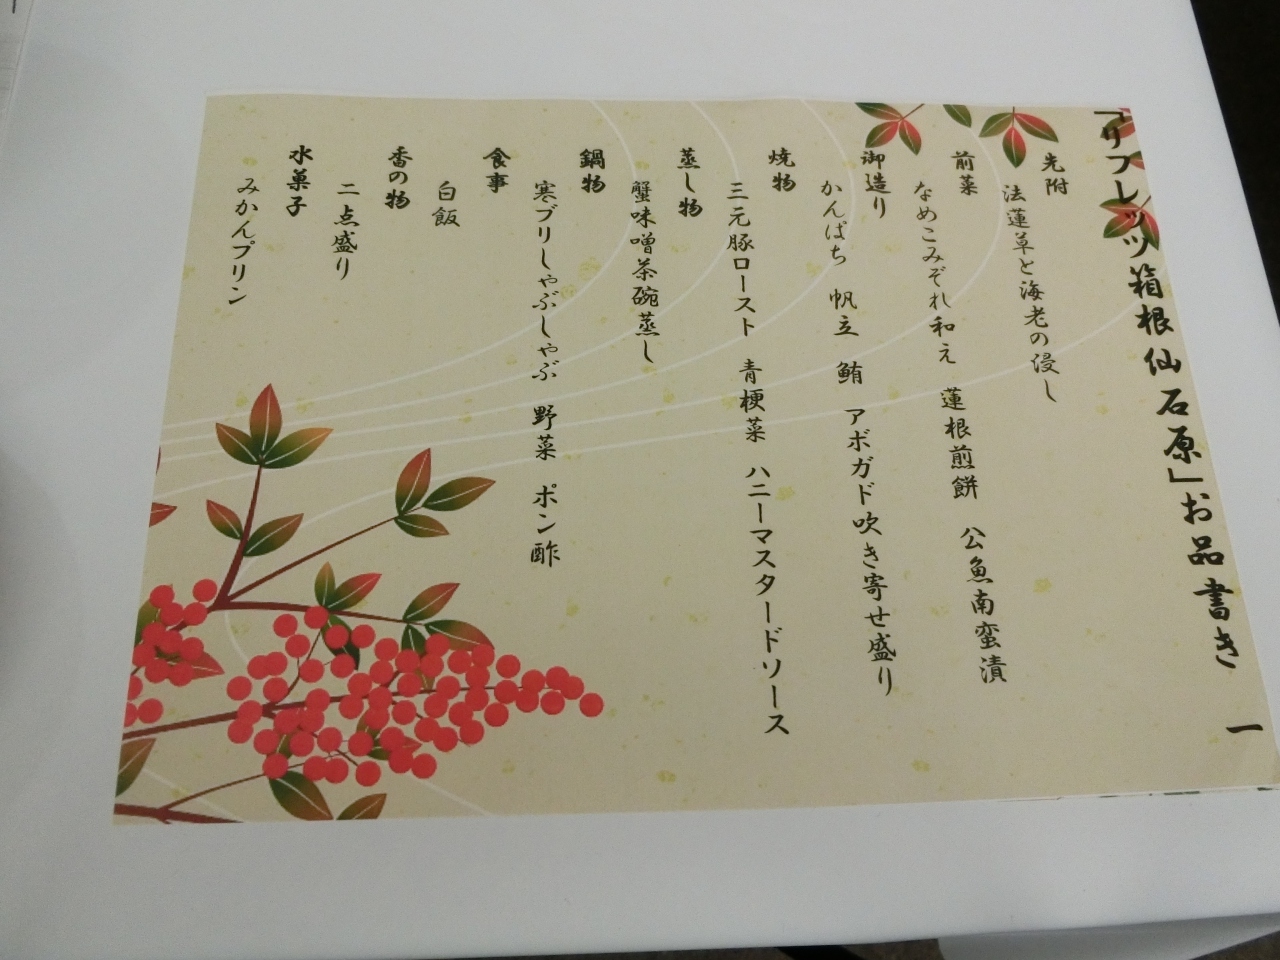 「リフレッツ箱根仙石原」お品書き 一
先附
法蓮草と海老の浸し
前菜
なめこみぞれ和え 蓮根煎餅 公魚南蛮漬
御造り
かんぱち 帆立 鮪 アボガド吹き寄せ盛り
焼物
三元豚ロースト 青梗菜 ハニーマスタードソース
蒸し物
蟹味噌茶碗蒸し
鍋物
寒ブリしゃぶしゃぶ 野菜 ポン酢
食事
白飯
香の物
二点盛り
水菓子
みかんプリン